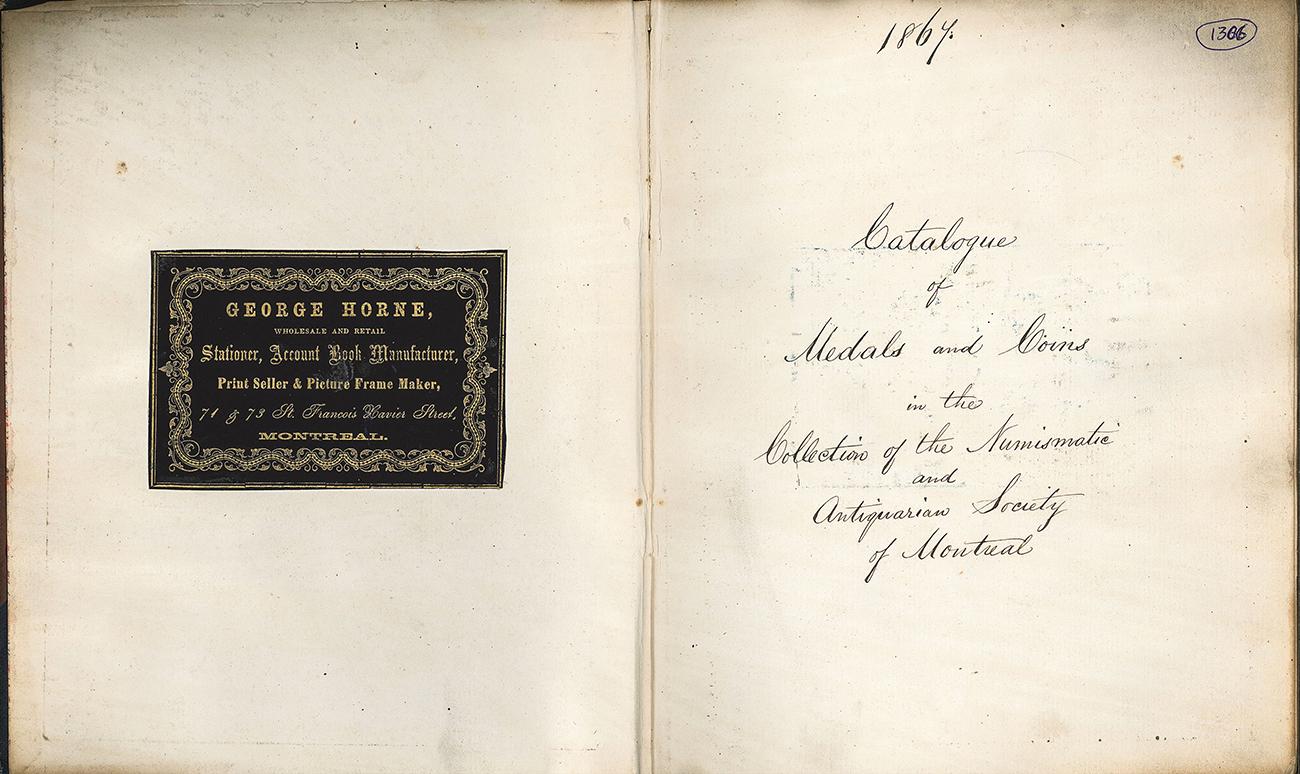 GEORGE HORNE,
WHOLESALE AND RETAIL
Stationer, Account Book Manufacturer,
Print Seller & Picture Frame Maker,
71 & 73 St. Francois Xavier Street,
MONTREAL.
1867.
1366
Catalogue
of
Medals and Coins
in the
Collection of the Numismatic
and
Antiquarian Society
of Montreal